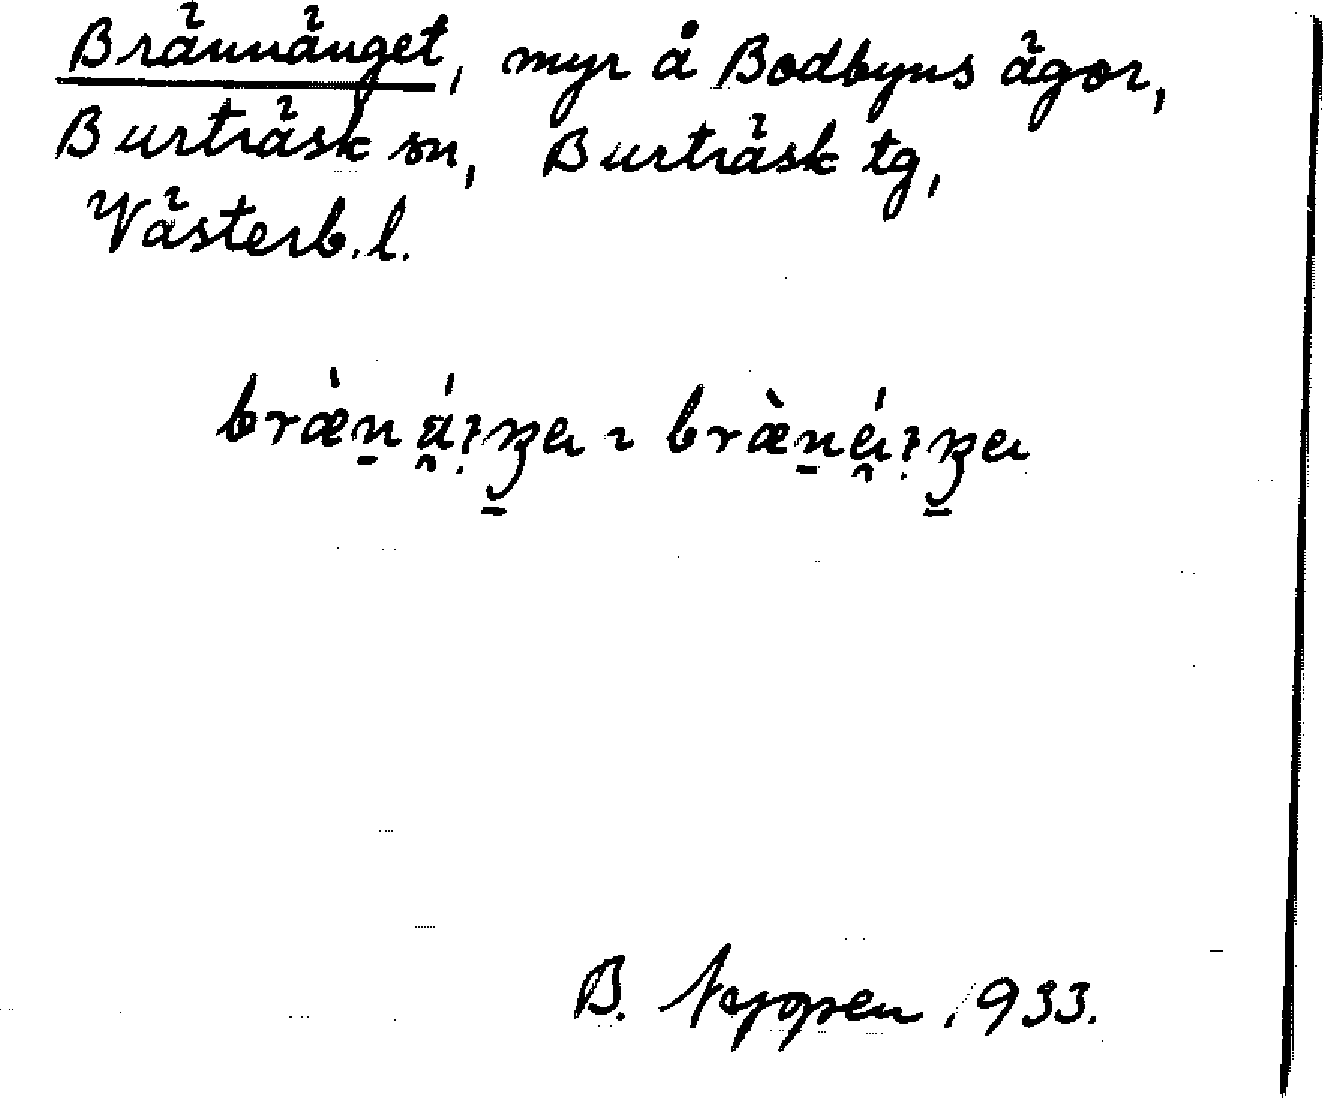 Brännänget, myr å Bodbyns ägor,
Burträsk sn, Burträsk tg,
Västerb. l.
B. Nygren 1933.